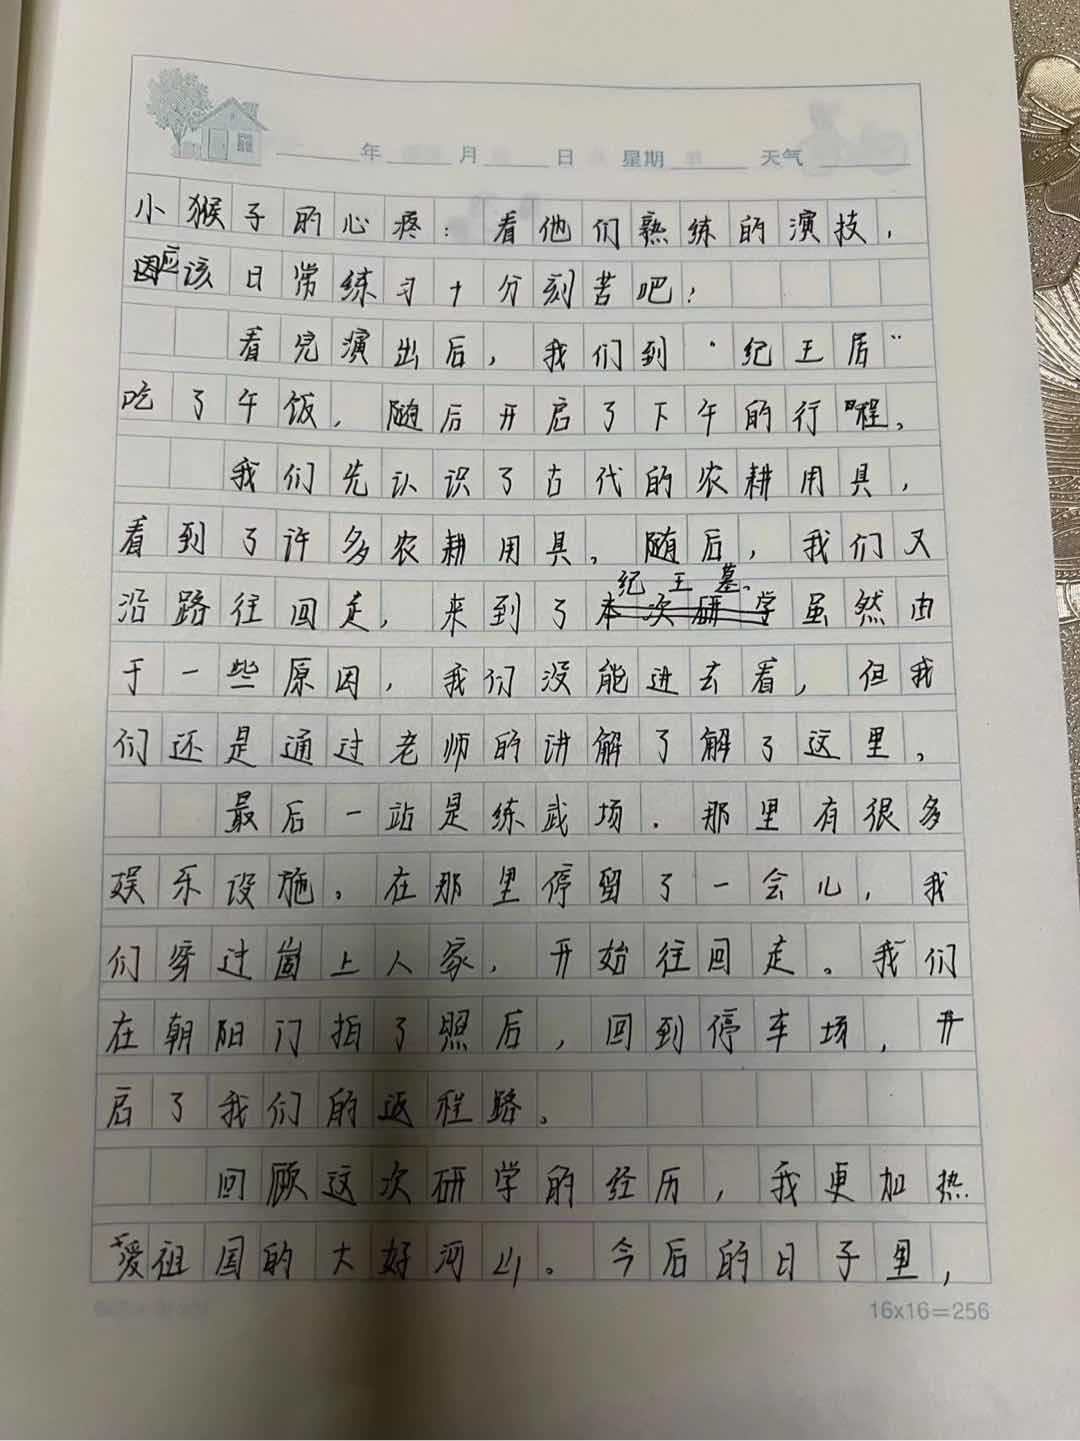 年 月 日 星期 天气
小猴子的心疼:看他们熟练的演技,
应该日常练习十分刻苦吧!
看完演出后,我们到“纪王居”
吃了午饭,随后开启了下午的行程。
我们先认识了古代的农耕用具,
看到了许多农耕用具。随后,我们又
沿路往回走,来到了纪王墓。虽然由
于一些原因,我们没能进去看,但我
们还是通过老师的讲解了解了这里。
最后一站是练武场.那里有很多
娱乐设施。在那里停留了一会儿,我
们穿过崮上人家,开始往回走。我们
在朝阳门拍了照后,回到停车场,开
启了我们的返程路。
回顾这次研学的经历,我更加热
爱祖国的大好河山。今后的日子里,
16x16=256